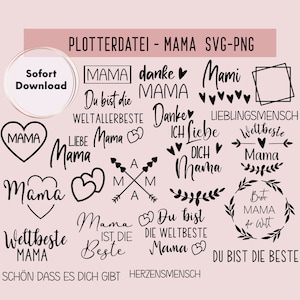 PLOTTERDATEI - MAMA SVG-PNG
Sofort
Download
MAMA
danke
MAMA
Mami
Du bist die
WELTALLERBESTE
Mama
Danke
ICH liebe
DICH
Mama
LIEBLINGSMENSCH
MAMA
LIEBE
Mama
A
M M
A
Weltbeste
Mama
Mama
Beste
MAMA
der Welt
Weltbeste
MAMA
Mama
IST DIE
Beste
Du bist
DIE WELTBESTE
Mama
DU BIST DIE BESTE
SCHÖN DASS ES DICH GIBT
HERZENSMENSCH